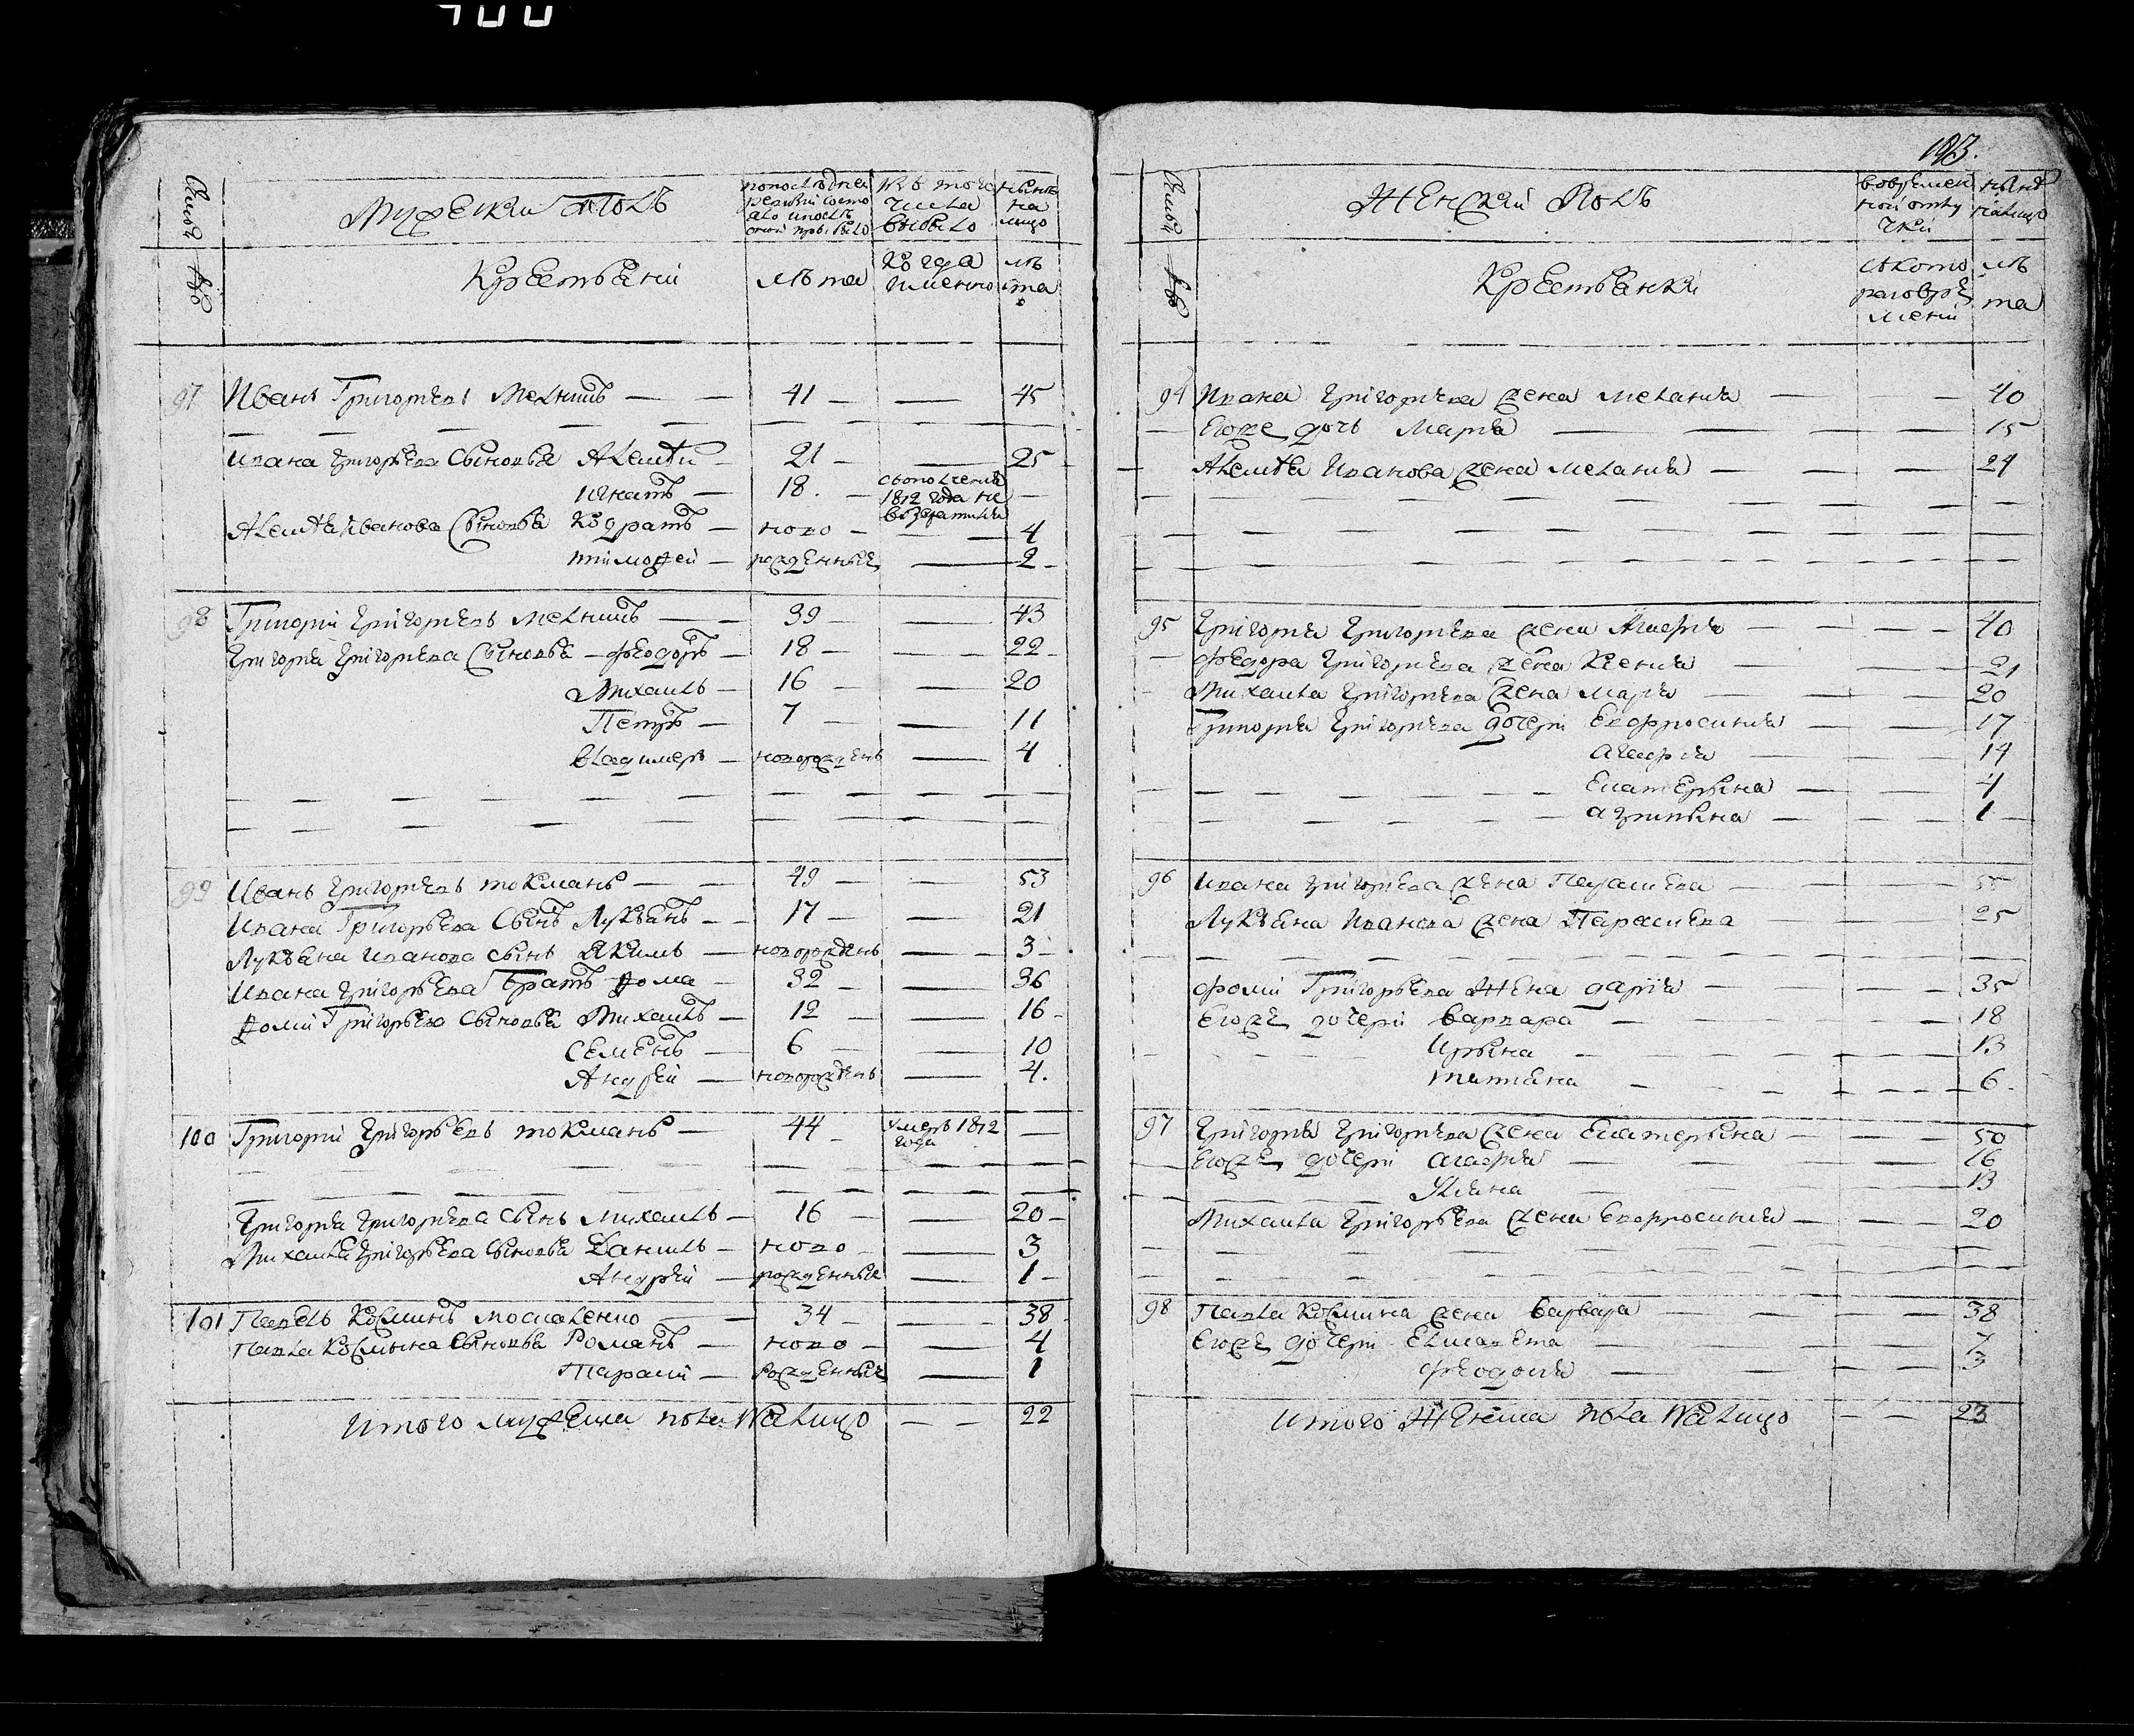 700
Мужески полъ
по последней ревизии состояло и после оной прибыло
изъ того числа выбыло
ныне на лицо
Крестьяний
лѣта
когда именно
лѣта
97 Иванъ Григорьевъ Мелникъ — 41 — — 45
Ивана Григорьева сыновья Алексѣй 21 — — 25
Игнатъ — 18. — с ополчения 1812 года не —
Алексѣя Иванова сыновья Кодратъ — ново — — 4
тимофей — рожденные — 2
98 Григорій Григорьевъ Мелникъ — 39 — — 43
Григорья Григорьева сыновья — феодоръ — 18 — — 22
Михаилъ — 16 — — 20
Петръ — 7 — — 11
Владимеръ — новорожденъ — 4
99 Иванъ Григорьевъ токмань — 49 — — 53
Ивана Григорьева сынъ Лукьянъ — 17 — — 21
Лукьяна Иванова сынъ Якимъ — новорожденъ — 3
Ивана Григорьева братъ фома — 32 — — 36
фоми Григорьева сыновья Михаилъ — 12 — — 16
Семенъ — 6 — — 10
Андрѣй — новорожденъ — 4.
100 Григорій Григорьевъ токмань — 44 — умеръ 1812 года —
Григорья Григорьева сынъ Михаилъ — 16 — — 20
Михаила Григорьева сыновья Данилъ — ново — — 3
Андрѣй — рожденные — 1
101 Павелъ Косминъ москаленко — 34 — — 38
Павла Космина сыновья Романъ — ново — — 4
Тарасій — рожденные — 1
Итого мужеска пола на лицо — — 22
193.
Женский Полъ
во временной отлучки
ныне на лицо
Крестьянки
с котораго времени
лѣта
94 Ивана Григорьева жена Мелания — — 40
Егоже дочь Марья — — 15
Алексѣя Иванова жена Мелания — — 24
95 Григорья Григорьева жена Агафия — — 40
Федора Григорьева жена Ксения — — 21
Михаила Григорьева жена Марья — — 20
Григорья Григорьева дочери Евфросиния — — 17
агафия — — 14
Екатерына — — 4
агрипына — — 1
96 Ивана Григорьева жена Парасиева — —
Лукьяна Иванова жена Парасиева — — 25
фоми Григорьева жена дария — — 35
Егоже дочери варвара — — 18
Ирына — — 13
татияна — — 6
97 Григорья Григорьева жена Екатерына — — 50
Егоже дочери агафия — — 16
Улияна — — 13
Михаила Григорьева жена Евфросиния — — 20
98 Павла Космина жена варвара — — 38
Егоже дочери Елисавета — — 7
феодосия — — 3
Итого Женска пола на лицо — — 23